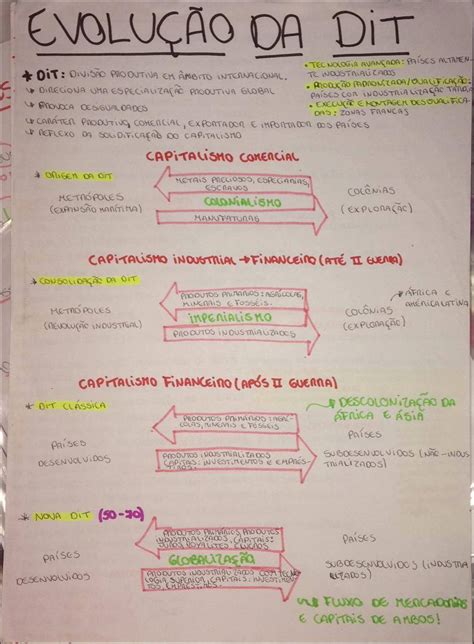 EVOLUÇÃO DA DIT
* DIT: DIVISÃO PRODUTIVA EM ÂMBITO INTERNACIONAL.
↳ DIRECIONA UMA ESPECIALIZAÇÃO PRODUTIVA GLOBAL
↳ PROVOCA DESIGUALDADES
↳ CARÁTER PRODUTIVO, COMERCIAL, EXPORTADOR E IMPORTADOR DOS PAÍSES
↳ REFLEXO DA SOLIDIFICAÇÃO DO CAPITALISMO
• TECNOLOGIA AVANÇADA: PAÍSES ALTAMEN-
TE INDUSTRIALIZADOS
• PRODUÇÃO PADRONIZADA/QUALIFICAÇÃO:
PAÍSES COM INDUSTRIALIZAÇÃO TARDIA
• EXECUÇÃO E MONTAGEM DESQUALIFICA-
DAS: ZONAS FRANCAS
CAPITALISMO COMERCIAL
* ORIGEM DA DIT
METAIS PRECIOSOS, ESPECIARIAS,
ESCRAVOS
METRÓPOLES
(EXPANSÃO MARÍTIMA)
COLONIALISMO
COLÔNIAS
(EXPLORAÇÃO)
MANUFATURAS
CAPITALISMO INDUSTRIAL → FINANCEIRO (ATÉ II GUERRA)
* CONSOLIDAÇÃO DA DIT
PRODUTOS PRIMÁRIOS: AGRÍCOLAS,
MINERAIS E FOSSÉIS.
ÁFRICA E
AMÉRICA LATINA
METRÓPOLES
(REVOLUÇÃO INDUSTRIAL)
IMPERIALISMO
COLÔNIAS
(EXPLORAÇÃO)
PRODUTOS INDUSTRIALIZADOS
CAPITALISMO FINANCEIRO (APÓS II GUERRA)
* DIT CLÁSSICA
↳ DESCOLONIZAÇÃO DA
ÁFRICA E ÁSIA
PRODUTOS PRIMÁRIOS: AGRÍ-
COLAS, MINERAIS E FOSSÉIS
PAÍSES
DESENVOLVIDOS
PRODUTOS INDUSTRIALIZADOS
CAPITAIS: INVESTIMENTOS E EMPRÉS-
PAÍSES
SUBDESENVOLVIDOS (NÃO-INDUS
TRIALIZADOS)
* NOVA DIT (50-70)
PRODUTOS PRIMÁRIOS PRODUTOS
INDUSTRIALIZADOS, CAPITAIS:
JUROS ROYALTIES LUCROS
PAÍSES
DESENVOLVIDOS
GLOBALIZAÇÃO
PAÍSES
SUBDESENVOLVIDOS (INDUSTRIA
LIZADOS)
PRODUTOS INDUSTRIALIZADOS COM TECNO-
LOGIA SUPERIOR, CAPITAIS: INVESTIMEN-
↳ FLUXO DE MERCADORIAS
E CAPITAIS DE AMBOS!